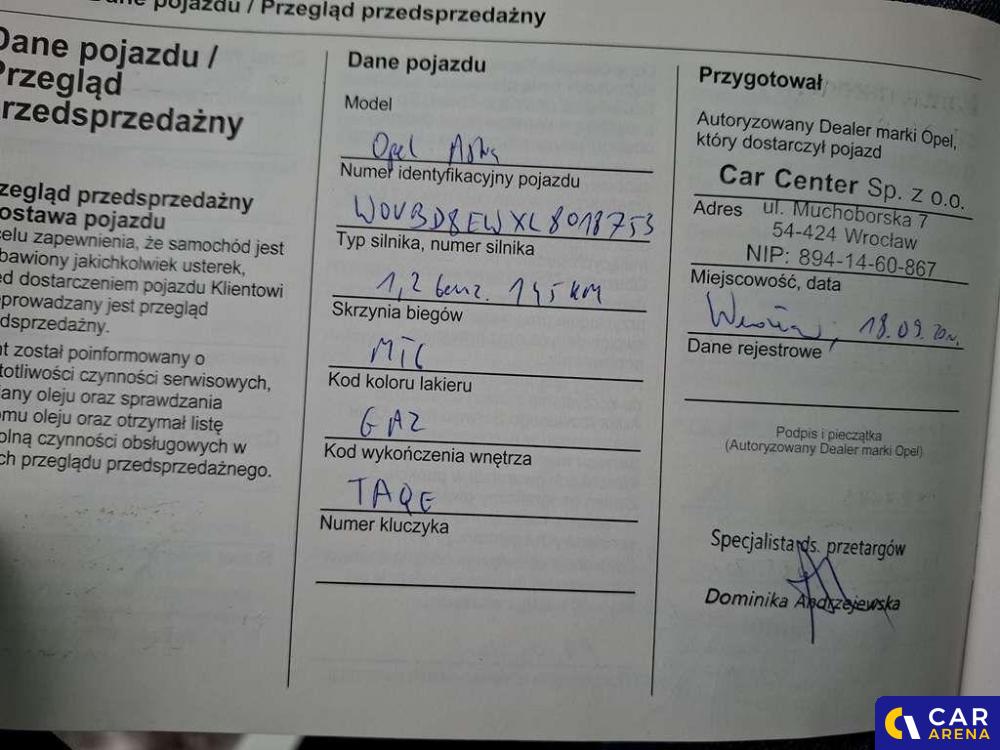 Dane pojazdu / Przegląd przedsprzedażny
Dane pojazdu /
Przegląd
przedsprzedażny
zegląd przedsprzedażny
ostawa pojazdu
celu zapewnienia, że samochód jest
bawiony jakichkolwiek usterek,
ed dostarczeniem pojazdu Klientowi
eprowadzany jest przegląd
dsprzedażny.
nt został poinformowany o
totliwości czynności serwisowych,
iany oleju oraz sprawdzania
omu oleju oraz otrzymał listę
olną czynności obsługowych w
ch przeglądu przedsprzedażnego.
Dane pojazdu
Model
Opel Astra
Numer identyfikacyjny pojazdu
W0VBD8EWXL8018753
Typ silnika, numer silnika
1,2 benz. 145 KM
Skrzynia biegów
Kod koloru lakieru
GAZ
Kod wykończenia wnętrza
TAQE
Numer kluczyka
Przygotował
Autoryzowany Dealer marki Opel,
który dostarczył pojazd
Car Center Sp. z o.o.
Adres ul. Muchoborska 7
54-424 Wrocław
NIP: 894-14-60-867
Miejscowość, data
18.09.20
Dane rejestrowe
Podpis i pieczątka
(Autoryzowany Dealer marki Opel)
Specjalista ds. przetargów
Dominika Andrzejewska
CAR
ARENA